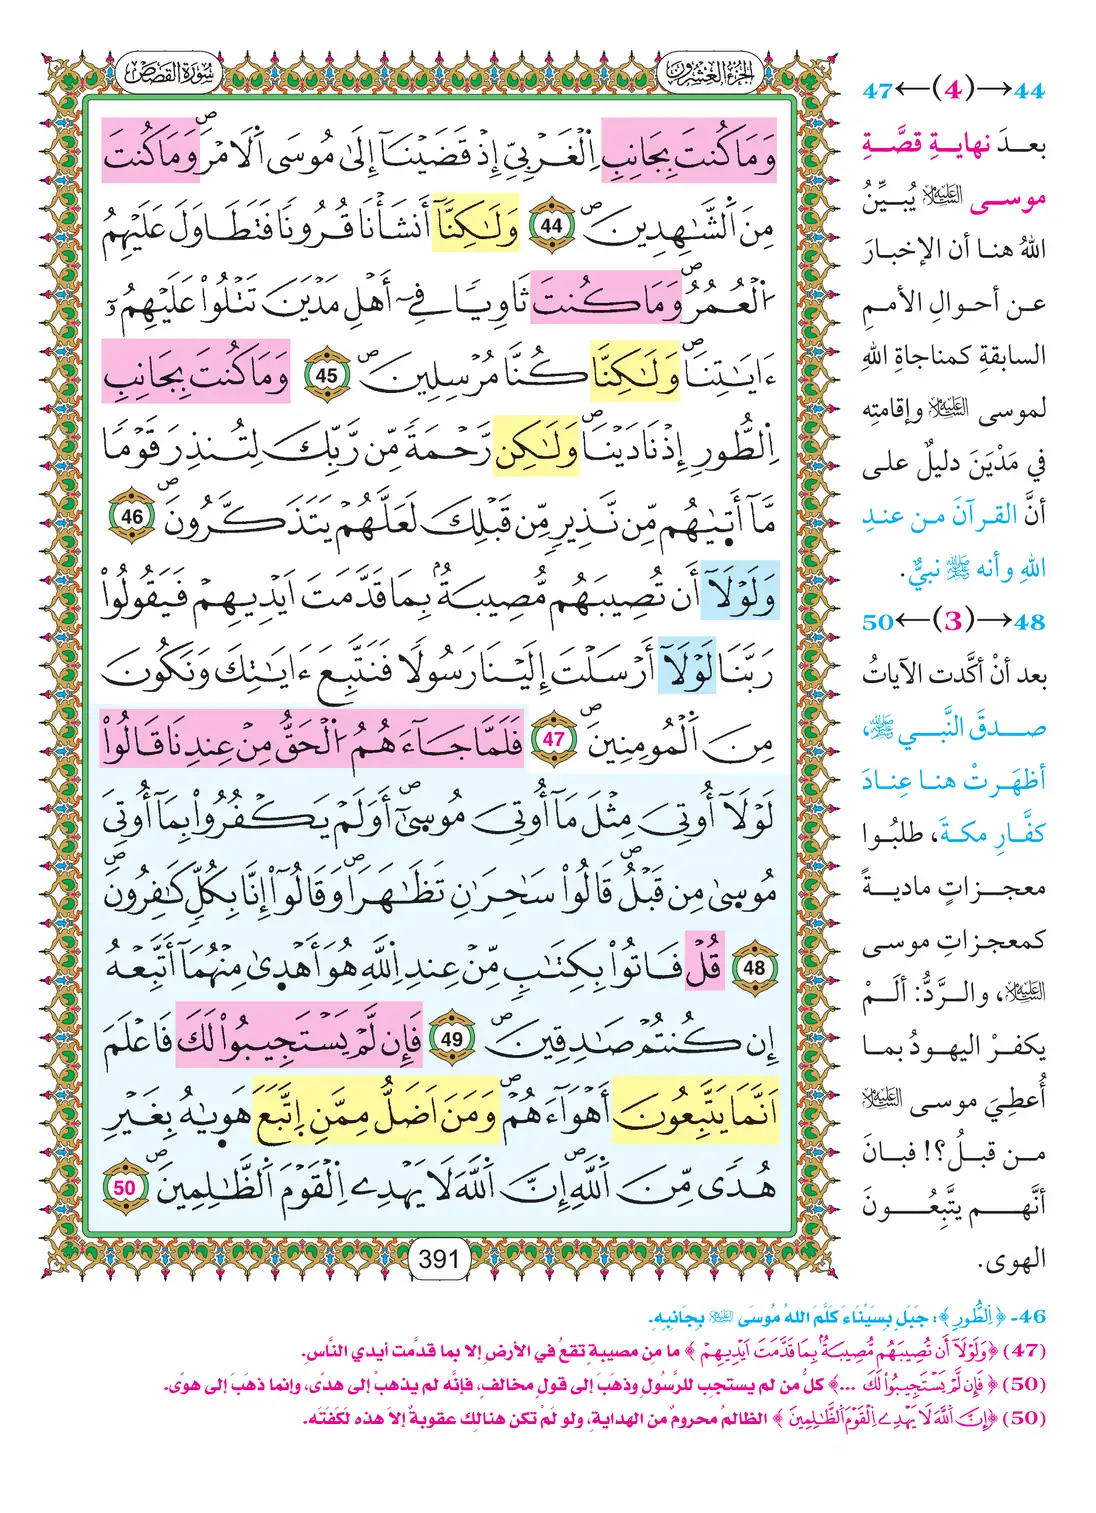 الجزء العشرون
سورة القصص
وَمَا كُنتَ بِجَانِبِ اِ۬لْغَرْبِيِّ إِذْ قَضَيْنَآ إِلَىٰ مُوسَى اَ۬لَامْرَۖ وَمَا كُنتَ
مِنَ اَ۬لشَّٰهِدِينَۖ 44 وَلَٰكِنَّآ أَنشَأْنَا قُرُوناٗ فَتَطَاوَلَ عَلَيْهِمُ
اُ۬لْعُمُرُۖ وَمَا كُنتَ ثَاوِياٗ فِےٓ أَهْلِ مَدْيَنَ تَتْلُواْ عَلَيْهِمُۥٓ
ءَايَٰتِنَاۖ وَلَٰكِنَّا كُنَّا مُرْسِلِينَۖ 45 وَمَا كُنتَ بِجَانِبِ
اِ۬لطُّورِ إِذْ نَادَيْنَاۖ وَلَٰكِن رَّحْمَةٗ مِّن رَّبِّكَ لِتُنذِرَ قَوْماٗ
مَّآ أَتٜىٰهُم مِّن نَّذِيرٖ مِّن قَبْلِكَ لَعَلَّهُمْ يَتَذَكَّرُونَۖ 46
وَلَوْلَآ أَن تُصِيبَهُم مُّصِيبَةُۢ بِمَا قَدَّمَتَ اَيْدِيهِمْ فَيَقُولُواْ
رَبَّنَا لَوْلَآ أَرْسَلْتَ إِلَيْنَا رَسُولاٗ فَنَتَّبِعَ ءَايَٰتِكَ وَنَكُونَ
مِنَ اَ۬لْمُومِنِينَۖ 47 فَلَمَّا جَآءَهُمُ اُ۬لْحَقُّ مِنْ عِندِنَا قَالُواْ
لَوْلَآ أُوتِيَ مِثْلَ مَآ أُوتِيَ مُوسٜىٰٓۖ أَوَلَمْ يَكْفُرُواْ بِمَآ أُوتِيَ
مُوسٜىٰ مِن قَبْلُۖ قَالُواْ سَٰحِرَٰنِ تَظَّٰهَرَاۖ وَقَالُوٓاْ إِنَّا بِكُلّٖ كَٰفِرُونَۖ
48 قُلْ فَاتُواْ بِكِتَٰبٖ مِّنْ عِندِ اِ۬للَّهِ هُوَ أَهْدٜىٰ مِنْهُمَآ أَتَّبِعْهُ
إِن كُنتُمْ صَٰدِقِينَۖ 49 فَإِن لَّمْ يَسْتَجِيبُواْ لَكَ فَاعْلَمَ
اَنَّمَا يَتَّبِعُونَ أَهْوَآءَهُمْۖ وَمَنَ اَضَلُّ مِمَّنِ اِ۪تَّبَعَ هَوٜىٰهُ بِغَيْرِ
هُدٗى مِّنَ اَ۬للَّهِۖ إِنَّ اَ۬للَّهَ لَا يَهْدِے اِ۬لْقَوْمَ اَ۬لظَّٰلِمِينَۖ 50
391
44→(4)←47
بعدَ نهايةِ قصَّةِ
موسى عليه السلام يُبيِّنُ
اللهُ هنا أن الإخبارَ
عن أحوالِ الأممِ
السابقةِ كمناجاةِ اللهِ
لموسى عليه السلام وإقامتِه
في مَدْيَنَ دليلٌ على
أنَّ القرآنَ من عندِ
اللهِ وأنه ﷺ نبيٌّ.
48→(3)←50
بعد أنْ أكَّدت الآياتُ
صدقَ النَّبي ﷺ،
أظهَرتْ هنا عِنادَ
كفَّارِ مكةَ، طلبُوا
معجزاتٍ ماديةً
كمعجزاتِ موسى
عليه السلام، والرَّدُّ: ألَمْ
يكفرْ اليهودُ بما
أُعطِيَ موسى عليه السلام
من قبلُ؟! فبانَ
أنَّهم يتَّبِعُونَ
الهوى.
46- ﴿اِ۬لطُّورِ﴾: جَبَلٍ بِسَيْنَاءَ كَلَّمَ اللهُ مُوسَى عليه السلام بِجَانِبِهِ.
(47) ﴿وَلَوْلَآ أَن تُصِيبَهُم مُّصِيبَةُۢ بِمَا قَدَّمَتَ اَيْدِيهِمْ﴾ ما من مصيبةٍ تقعُ في الأرضِ إلا بما قدَّمت أيدي النَّاسِ.
(50) ﴿فَإِن لَّمْ يَسْتَجِيبُواْ لَكَ ...﴾ كلُّ من لم يستجب للرَّسُولِ وذهَبَ إلى قولٍ مخالفٍ، فإنَّه لم يذهبْ إلى هدًى، وإنما ذهَبَ إلى هوًى.
(50) ﴿إِنَّ اَ۬للَّهَ لَا يَهْدِے اِ۬لْقَوْمَ اَ۬لظَّٰلِمِينَ﴾ الظالمُ محرومٌ من الهدايةِ، ولو لَمْ تكن هنالك عقوبةٌ إلا هذه لَكَفَتَه.